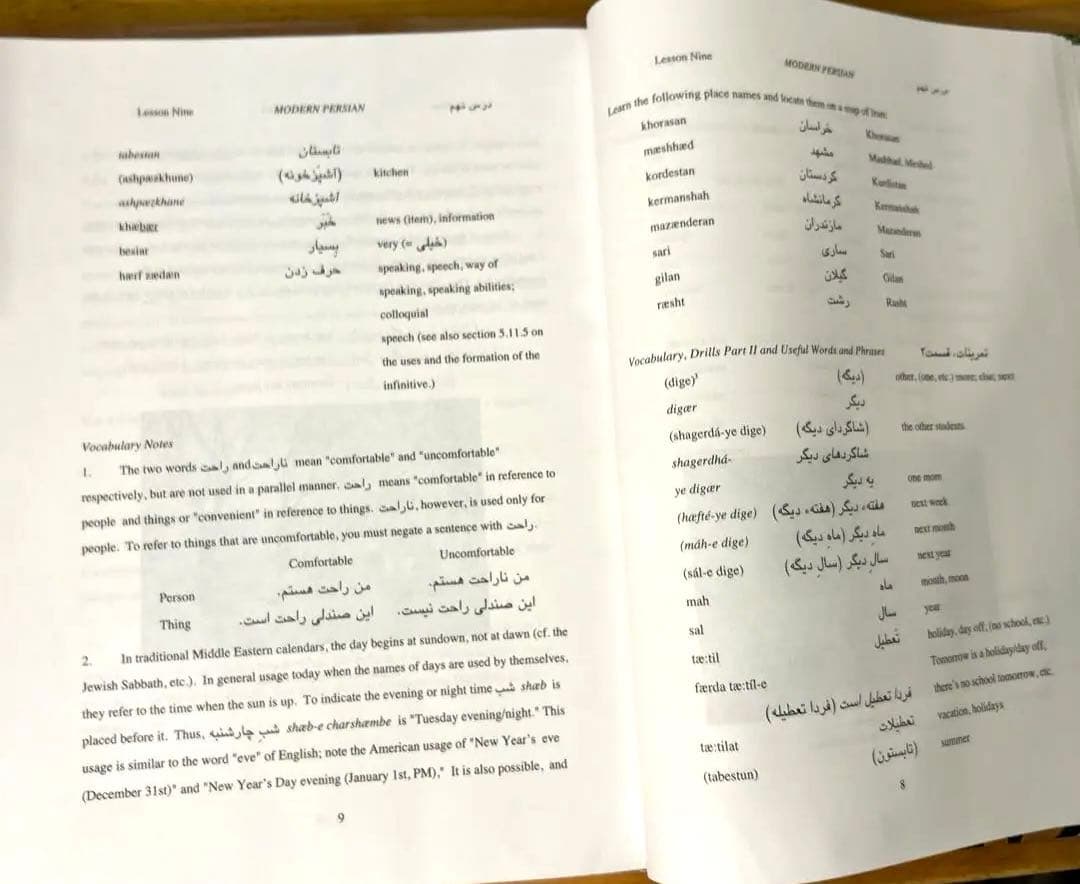 Lesson Nine MODERN PERSIAN درس نهم
Learn the following place names and locate them on a map of Iran:
khorasan خراسان Khorasan
mæshhæd مشهد Mashhad, Meshed
kordestan کردستان Kurdistan
kermanshah کرمانشاه Kermanshah
mazænderan مازندران Mazenderan
sari ساری Sari
gilan گیلان Gilan
ræsht رشت Rasht
Vocabulary, Drills Part II and Useful Words and Phrases تمرینات، قسمت ۲
(dige)¹ (دیگه) other, (one, etc.) more; else; next
digær دیگر
(shagerdá-ye dige) (شاگردای دیگه) the other students
shagerdhá- شاگردهای دیگر
ye digær یه دیگر one more
(hæfté-ye dige) هفتهء دیگر (هفتهء دیگه) next week
(máh-e dige) ماهِ دیگر (ماهِ دیگه) next month
(sál-e dige) سالِ دیگر (سالِ دیگه) next year
mah ماه month, moon
sal سال year
tæ:til تَعطیل holiday, day off, (no school, etc.)
færda tæ:tíl-e Tomorrow is a holiday/day off,
فردا تعطیل است (فردا تعطیله) there's no school tomorrow, etc.
tæ:tilat تعطیلات vacation, holidays
(tabestun) (تابستون) summer
8
Lesson Nine MODERN PERSIAN درس نهم
tabestan تابستان
(ashpæzkhune) (آشپَزخونه) kitchen
ashpæzkhane آشپزخانه
khæbær خَبَر news (item), information
besiar بِسیار very (= خیلی)
hærf zædæn حرف زدن speaking, speech, way of
speaking, speaking abilities;
colloquial
speech (see also section 5.11.5 on
the uses and the formation of the
infinitive.)
Vocabulary Notes
1. The two words راحت and ناراحت mean "comfortable" and "uncomfortable"
respectively, but are not used in a parallel manner. راحت means "comfortable" in reference to
people and things or "convenient" in reference to things. ناراحت, however, is used only for
people. To refer to things that are uncomfortable, you must negate a sentence with راحت.
Comfortable Uncomfortable
Person من راحت هستم. من ناراحت هستم.
Thing این صندلی راحت است. این صندلی راحت نیست.
2. In traditional Middle Eastern calendars, the day begins at sundown, not at dawn (cf. the
Jewish Sabbath, etc.). In general usage today when the names of days are used by themselves,
they refer to the time when the sun is up. To indicate the evening or night time شب shæb is
placed before it. Thus, شبِ چارشنبه shæb-e charshæmbe is "Tuesday evening/night." This
usage is similar to the word "eve" of English; note the American usage of "New Year's eve
(December 31st)" and "New Year's Day evening (January 1st, PM)," It is also possible, and
9